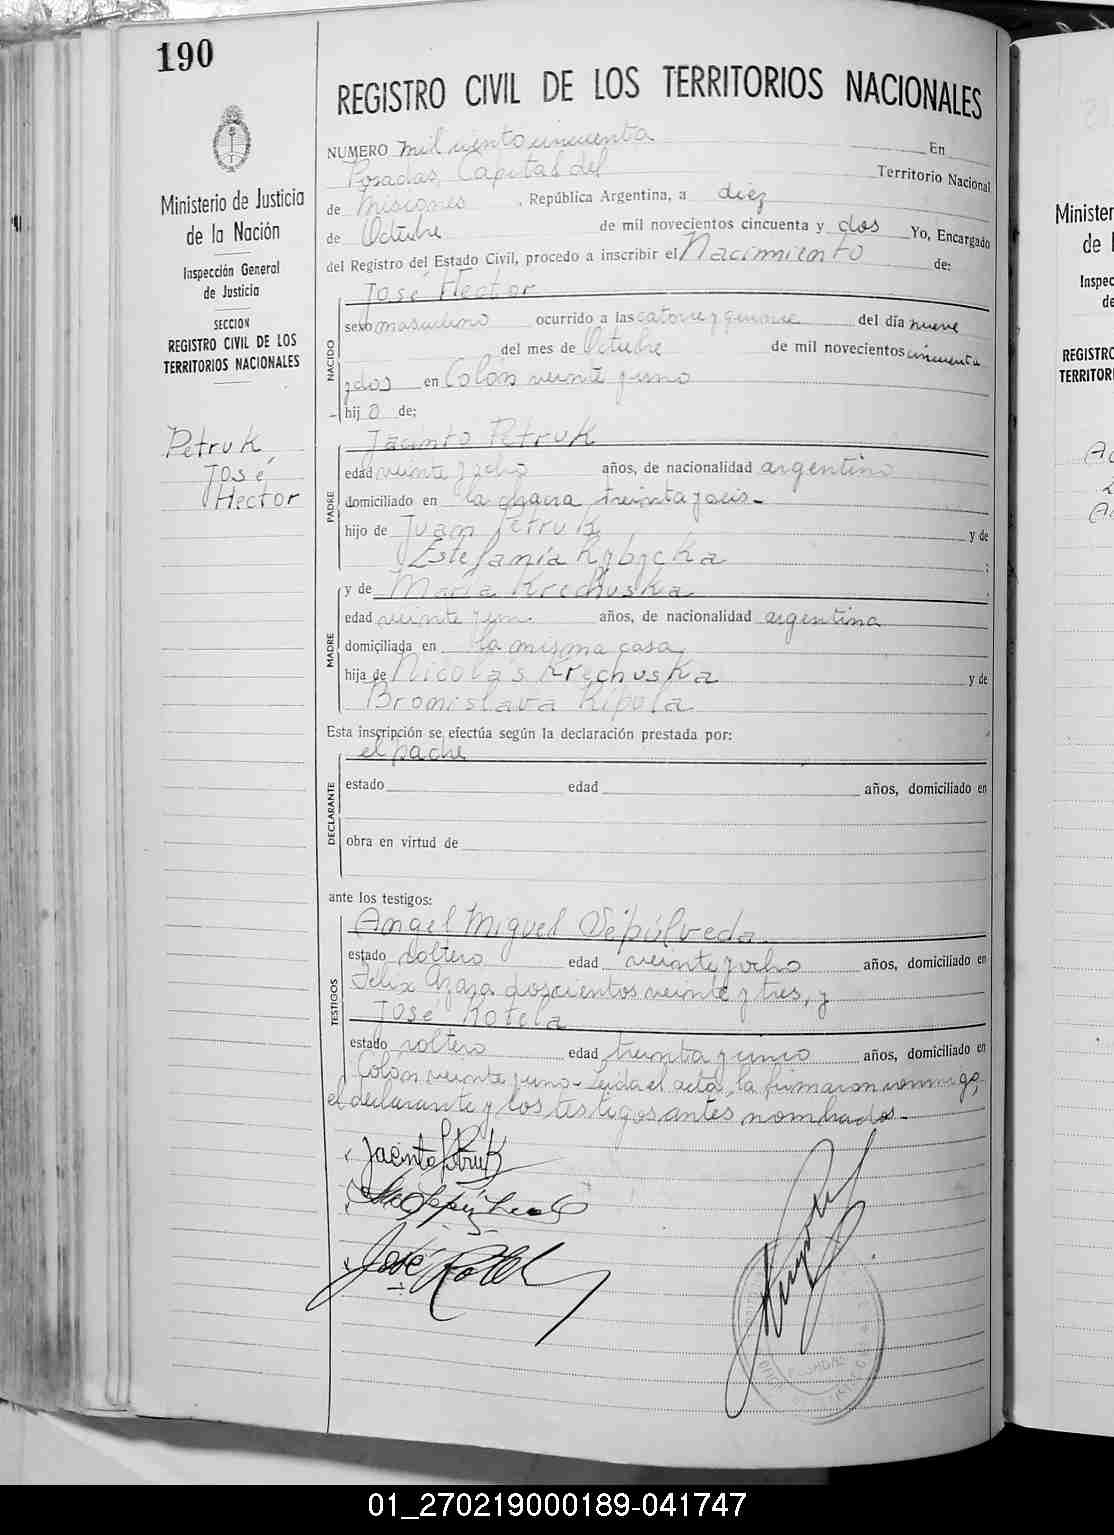 190
Ministerio de Justicia
de la Nación
Inspección General
de Justicia
SECCION
REGISTRO CIVIL DE LOS
TERRITORIOS NACIONALES
Petruk,
José
Hector
REGISTRO CIVIL DE LOS TERRITORIOS NACIONALES
NUMERO mil ciento cincuenta En
Posadas, Capital del Territorio Nacional
de Misiones, República Argentina, a diez
de Octubre de mil novecientos cincuenta y dos Yo, Encargado
del Registro del Estado Civil, procedo a inscribir el Nacimiento de:
NACIDO
José Hector
sexo masculino ocurrido a las catorce y quince del día nueve
del mes de Octubre de mil novecientos cincuenta
y dos en Colon veinte y uno
hij o de;
PADRE
Jacinto Petruk
edad veinte y ocho años, de nacionalidad argentino
domiciliado en la chacra treinta y seis-
hijo de Juan Petruk y de
Estefanía Rybycka ;
MADRE
y de María Krechuska
edad veinte y un años, de nacionalidad argentina
domiciliada en la misma casa
hija de Nicolás Krechuska y de
Bronislava Kipula
Esta inscripción se efectúa según la declaración prestada por:
DECLARANTE
el padre
estado edad años, domiciliado en
obra en virtud de
ante los testigos:
TESTIGOS
Angel Miguel Sepúlveda
estado soltero edad veinte y ocho años, domiciliado en
Félix Azara doscientos veinte y tres, y
José Rotela
estado soltero edad treinta y cinco años, domiciliado en
Colon veinte y uno- Leída el acta, la firmaron conmigo,
el declarante y los testigos antes nombrados-
Jacinto Petruk
José Rotela
POSADAS
Minister
de l
Inspec
de
REGISTRO
TERRITORI
01_270219000189-041747